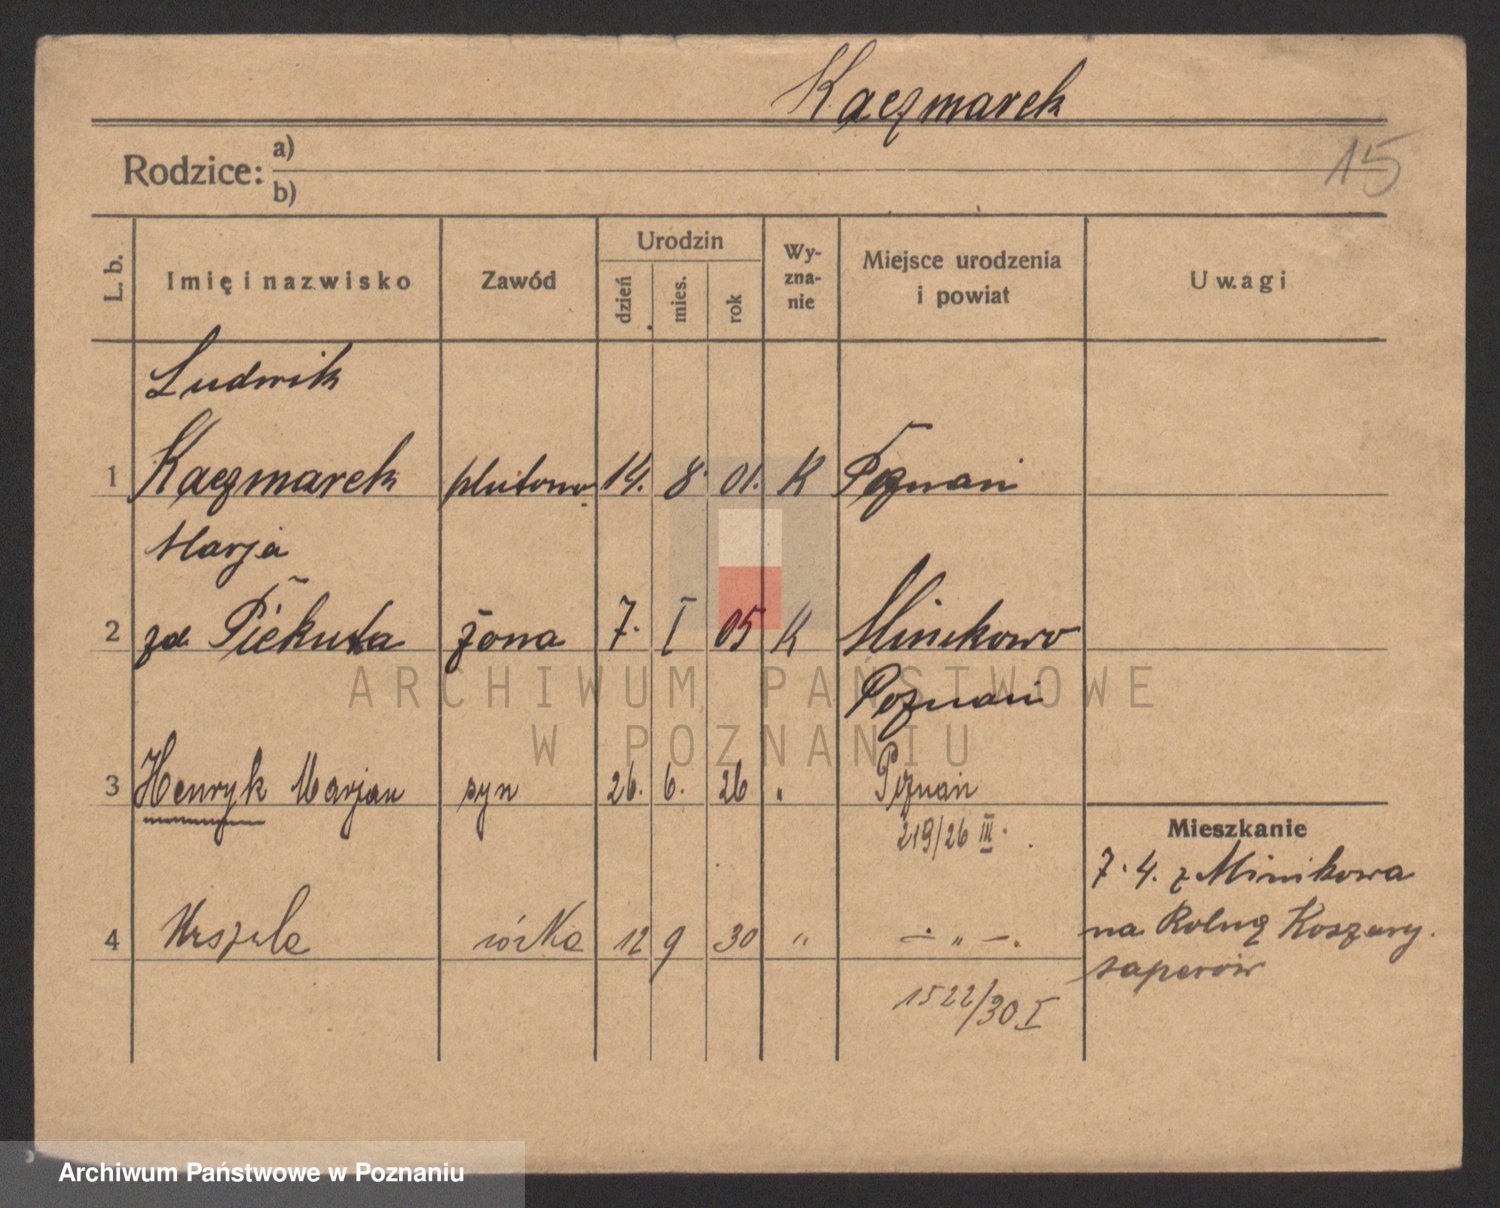 Kaczmarek
15
Rodzice: a)
b)
L. b.
Imię i nazwisko
Zawód
Urodzin
dzień
mies.
rok
Wy-
zna-
nie
Miejsce urodzenia
i powiat
Uwagi
Ludwik
1 Kaczmarek plutonow. 14. 8. 01. K Poznań
Marja
2 zd Piekuta żona 7. I 05 K Minikowo
Poznań
3 Henryk Marjan syn 26. 6. 26 " Poznań
219/26 III.
4 Urszula córka 12 9 30 " — " —.
1522/30 I
Mieszkanie
7. 4. z Minikowa
na Rolną Koszary.
saperów
ARCHIWUM PAŃSTWOWE
W POZNANIU
Archiwum Państwowe w Poznaniu